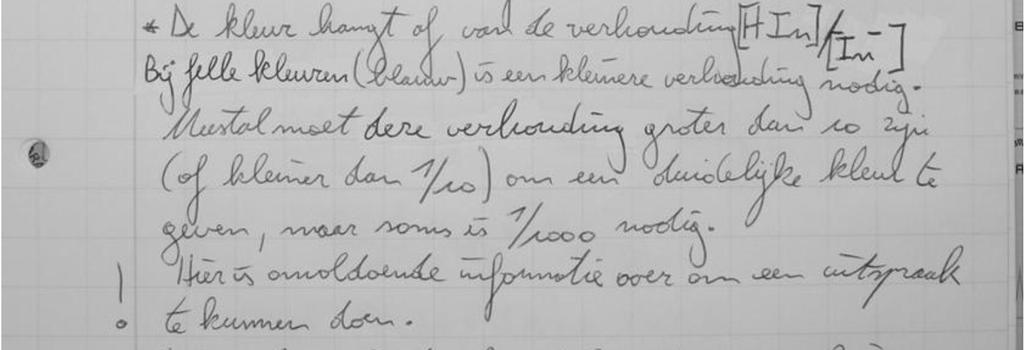 * De kleur hangt af van de verhouding [HIn]/[In⁻]
Bij felle kleuren (blauw) is een kleinere verhouding nodig.
Meestal moet deze verhouding groter dan 10 zijn
(of kleiner dan 1/10) om een duidelijke kleur te
geven, maar soms is 1/1000 nodig.
! Hier is onvoldoende informatie over om een uitspraak
te kunnen doen.